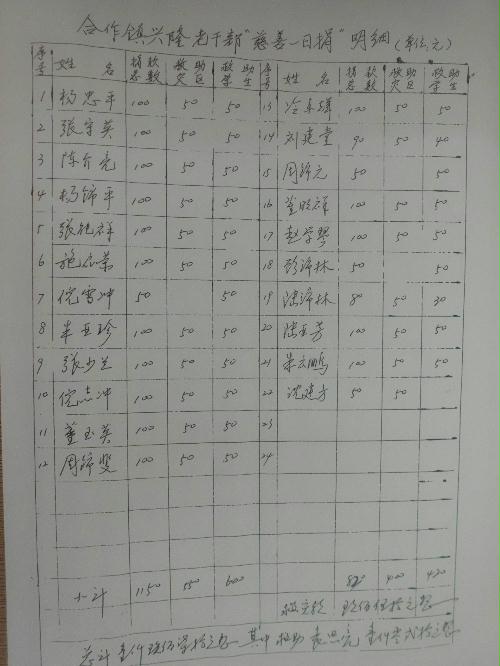 合作镇兴隆老干部"慈善一日捐"明细(单位:元)
序号 姓名 捐款总数 救助灾区 救助学生 序号 姓名 捐款总数 救助灾区 救助学生
1 杨忠平 100 50 50 13 100 50 50
2 張守英 100 50 50 14 刘建堂 90 50 40
3 陈介亮 100 50 50 15 周锦元 50 50
4 杨锦平 100 50 50 16 董明祥 100 50 50
5 張能祥 100 50 50 17 赵学琴 100 50 50
6 施 100 50 50 18 林 50 50
7 倪雪冲 50 50 19 林 80 50 30
8 朱亚珍 100 50 50 20 陆亚芳 100 50 50
9 張少兰 100 50 50 21 朱云鹏 100 50 50
10 倪志冲 100 50 50 22 沈建方 50 50
11 董玉英 100 50 50 23
12 周锦雙 100 50 50 24
小计 1150 550 600 820 400 420
总计 其中